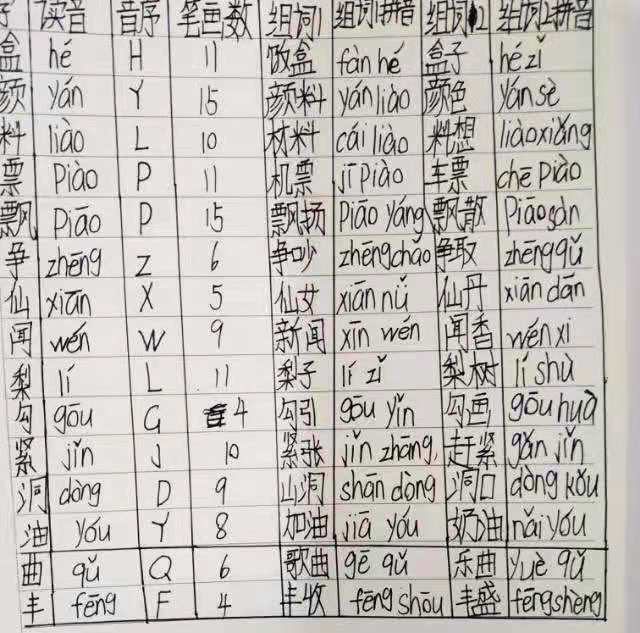 字 读音 音序 笔画数 组词1 组词1拼音 组词2 组词2拼音
盒 hé H 11 饭盒 fàn hé 盒子 hé zǐ
颜 yán Y 15 颜料 yán liào 颜色 yán sè
料 liào L 10 材料 cái liào 料想 liào xiǎng
票 piào P 11 机票 jī piào 车票 chē piào
飘 piāo P 15 飘扬 piāo yáng 飘散 piāo sàn
争 zhēng Z 6 争吵 zhēng chǎo 争取 zhēng qǔ
仙 xiān X 5 仙女 xiān nǚ 仙丹 xiān dān
闻 wén W 9 新闻 xīn wén 闻香 wén xi
梨 lí L 11 梨子 lí zǐ 梨树 lí shù
勾 gōu G 4 勾引 gōu yǐn 勾画 gōu huà
紧 jǐn J 10 紧张 jǐn zhāng, 赶紧 gǎn jǐn
洞 dòng D 9 山洞 shān dòng 洞口 dòng kǒu
油 yóu Y 8 加油 jiā yóu 奶油 nǎi yóu
曲 qǔ Q 6 歌曲 gē qǔ 乐曲 yuè qǔ
丰 fēng F 4 丰收 fēng shōu 丰盛 fēng shèng